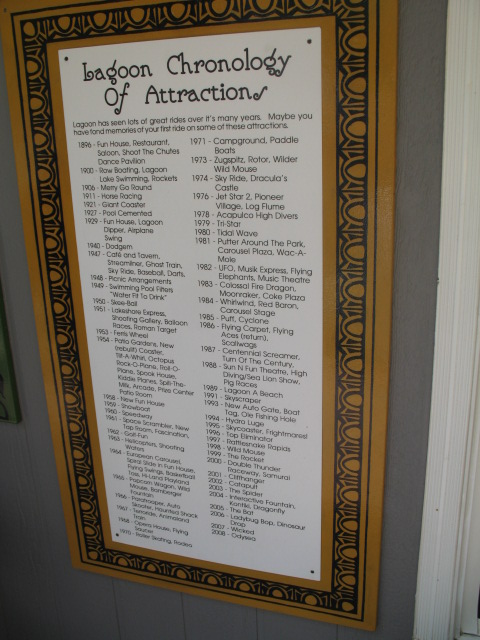 Lagoon Chronology
Of Attractions
Lagoon has seen lots of great rides over it's many years. Maybe you
have fond memories of your first ride on some of these attractions.
1896 - Fun House, Restaurant,
Saloon, Shoot The Chutes
Dance Pavilion
1900 - Row Boating, Lagoon
Lake Swimming, Rockets
1906 - Merry Go Round
1911 - Horse Racing
1921 - Giant Coaster
1927 - Pool Cemented
1929 - Fun House, Lagoon
Dipper, Airplane
Swing
1940 - Dodgem
1947 - Café and Tavern,
Streamliner, Ghost Train,
Sky Ride, Baseball, Darts,
1948 - Picnic Arrangements
1949 - Swimming Pool Filters
"Water Fit To Drink"
1950 - Skee-Ball
1951 - Lakeshore Express,
Shooting Gallery, Balloon
Races, Roman Target
1953 - Ferris Wheel
1954 - Patio Gardens, New
(rebuilt) Coaster,
Tilt-A-Whirl, Octopus
Rock-O-Plane, Roll-O-
Plane, Spook House,
Kiddie Planes, Spill-The-
Milk, Arcade, Pizza Center
Patio Room
1958 - New Fun House
1959 - Showboat
1960 - Speedway
1961 - Space Scrambler, New
Tap Room, Fascination,
1962 - Golf-Fun
1963 - Helicopters, Shooting
Waters
1964 - European Carousel,
Spiral Slide in Fun House,
Flying Swings, Basketball
Toss, Hi-Land Playland
1965 - Popcorn Wagon, Wild
Mouse, Bamberger
Fountain
1966 - Paratrooper, Auto
Skooter, Haunted Shack
1967 - Terroride, Animaland
Train
1968 - Opera House, Flying
Saucer
1970 - Roller Skating, Rodeo
1971 - Campground, Paddle
Boats
1973 - Zugspitz, Rotor, Wilder
Wild Mouse
1974 - Sky Ride, Dracula's
Castle
1976 - Jet Star 2, Pioneer
Village, Log Flume
1978 - Acapulco High Divers
1979 - Tri-Star
1980 - Tidal Wave
1981 - Putter Around The Park,
Carousel Plaza, Wac-A-
Mole
1982 - UFO, Musik Express, Flying
Elephants, Music Theatre
1983 - Colossal Fire Dragon,
Moonraker, Coke Plaza
1984 - Whirlwind, Red Baron,
Carousel Stage
1985 - Puff, Cyclone
1986 - Flying Carpet, Flying
Aces (return),
Scallwags
1987 - Centennial Screamer,
Turn Of The Century,
1988 - Sun N Fun Theatre, High
Diving/Sea Lion Show,
Pig Races
1989 - Lagoon A Beach
1991 - Skyscraper
1993 - New Auto Gate, Boat
Tag, Ole Fishing Hole
1994 - Hydro Luge
1995 - Skycoaster, Frightmares!
1996 - Top Eliminator
1997 - Rattlesnake Rapids
1998 - Wild Mouse
1999 - The Rocket
2000 - Double Thunder
Raceway, Samurai
2001 - Cliffhanger
2002 - Catapult
2003 - The Spider
2004 - Interactive Fountain,
Kontiki, Dragonfly
2005 - The Bat
2006 - Ladybug Bop, Dinosaur
Drop
2007 - Wicked
2008 - Odysea